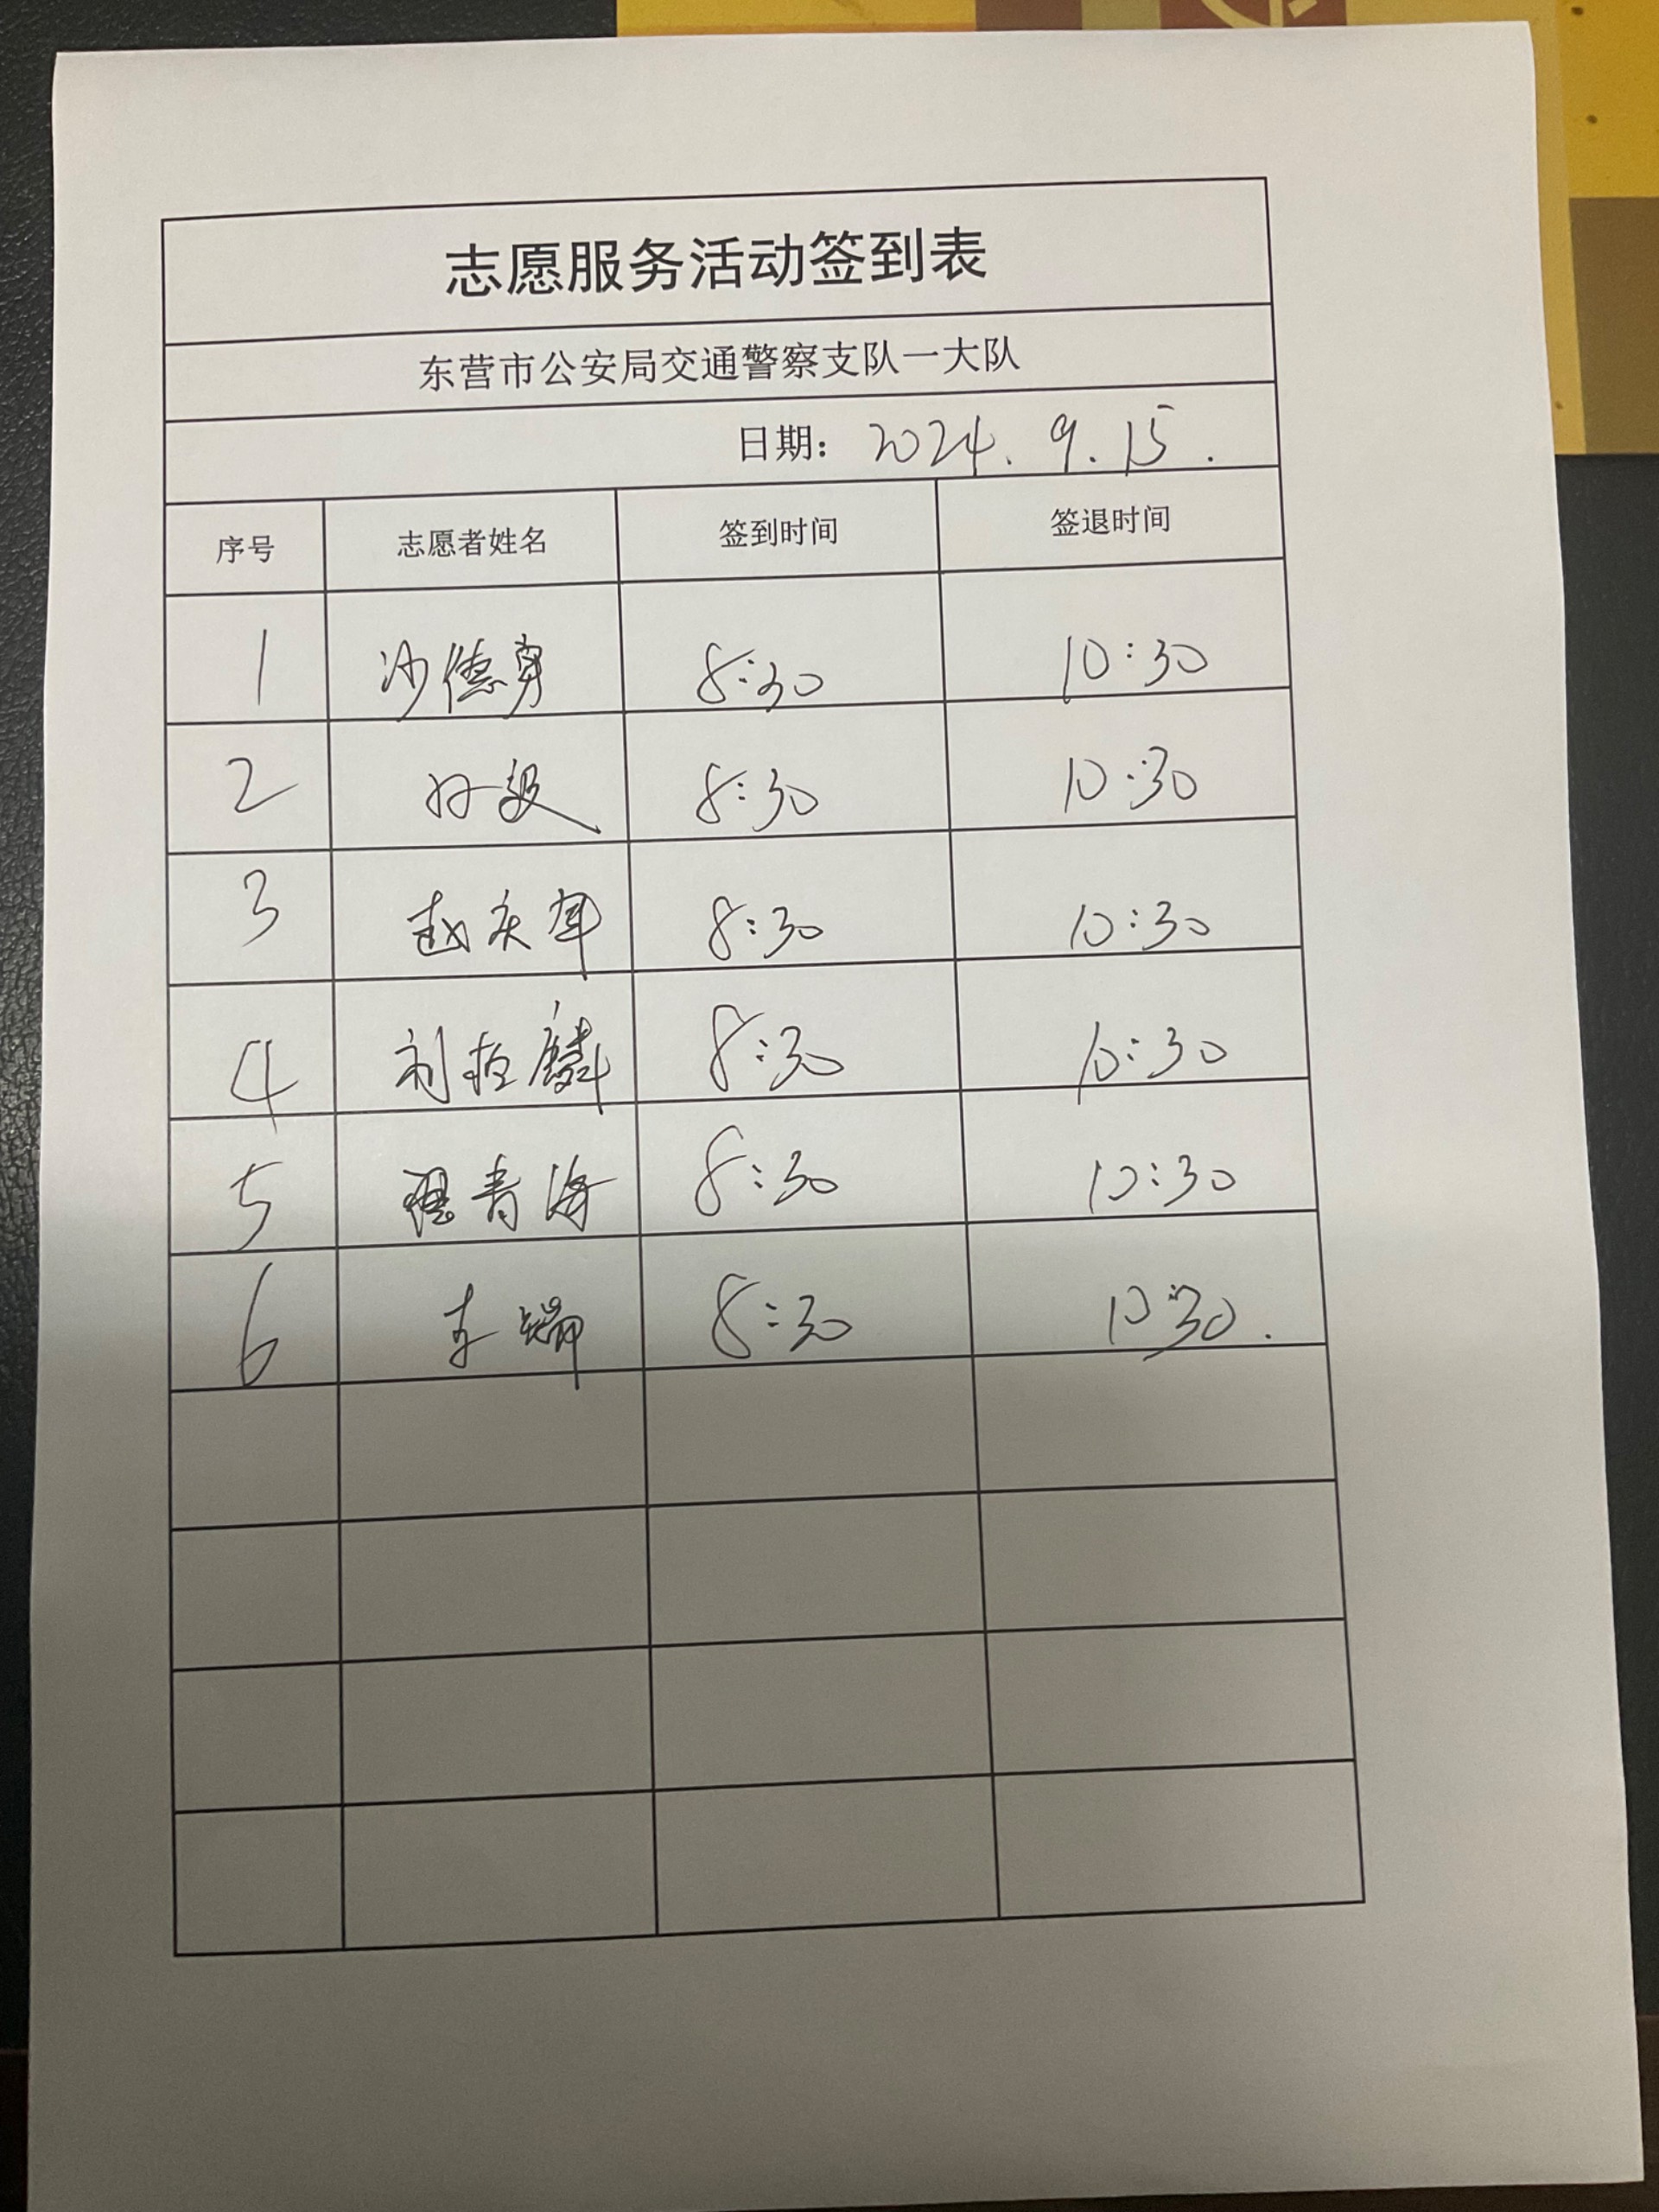 志愿服务活动签到表
东营市公安局交通警察支队一大队
日期: 2024.9.15.
序号 志愿者姓名 签到时间 签退时间
1 沙德勇 8:30 10:30
2 8:30 10:30
3 赵庆军 8:30 10:30
4 刘 麟 8:30 10:30
5 青海 8:30 10:30
6 8:30 10:30.